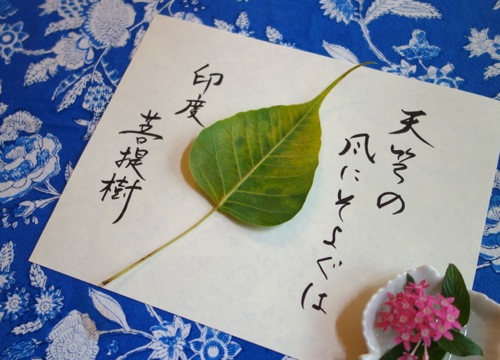 天竺の
風にそよぐは
印度
菩提樹